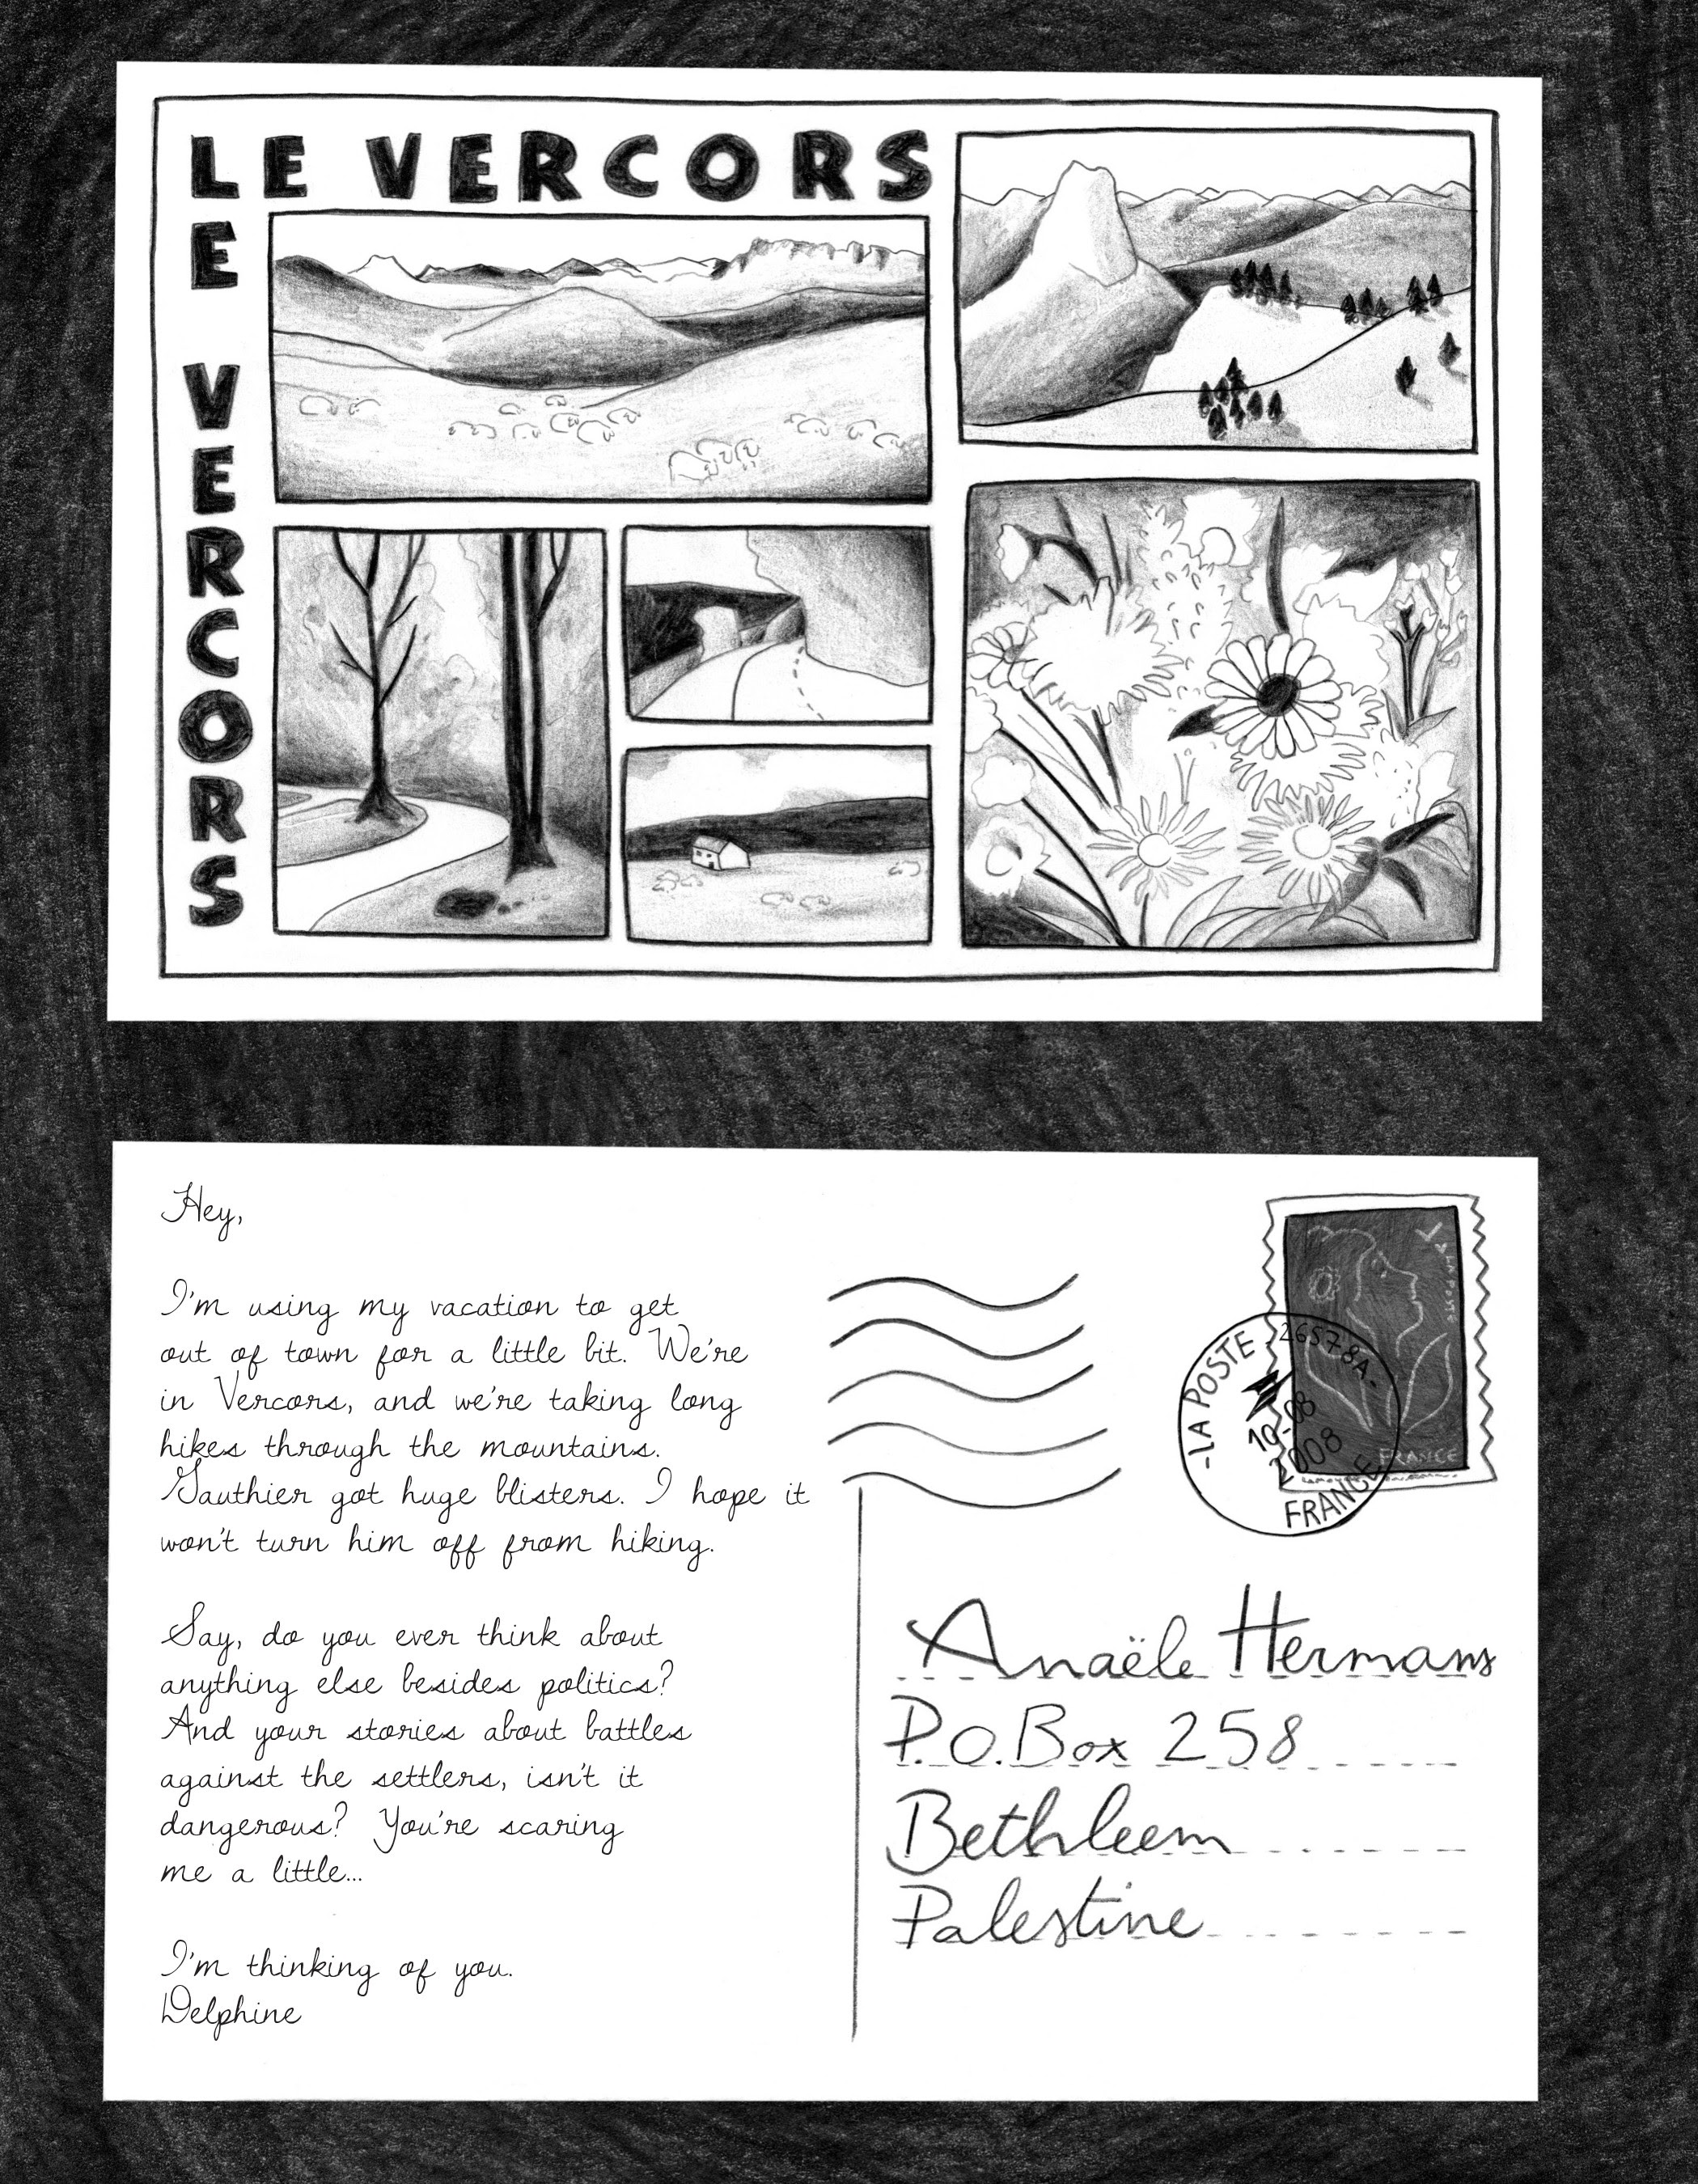 LE VERCORS
LE VERCORS
Hey,
I'm using my vacation to get
out of town for a little bit. We're
in Vercors, and we're taking long
hikes through the mountains.
Gauthier got huge blisters. I hope it
won't turn him off from hiking.
Say, do you ever think about
anything else besides politics?
And your stories about battles
against the settlers, isn't it
dangerous? You're scaring
me a little...
I'm thinking of you.
Delphine
LA POSTE
FRANCE
-LA POSTE 26578A-
10-08
2008
FRANCE
Anaële Hermans
P.O.Box 258
Bethleem
Palestine